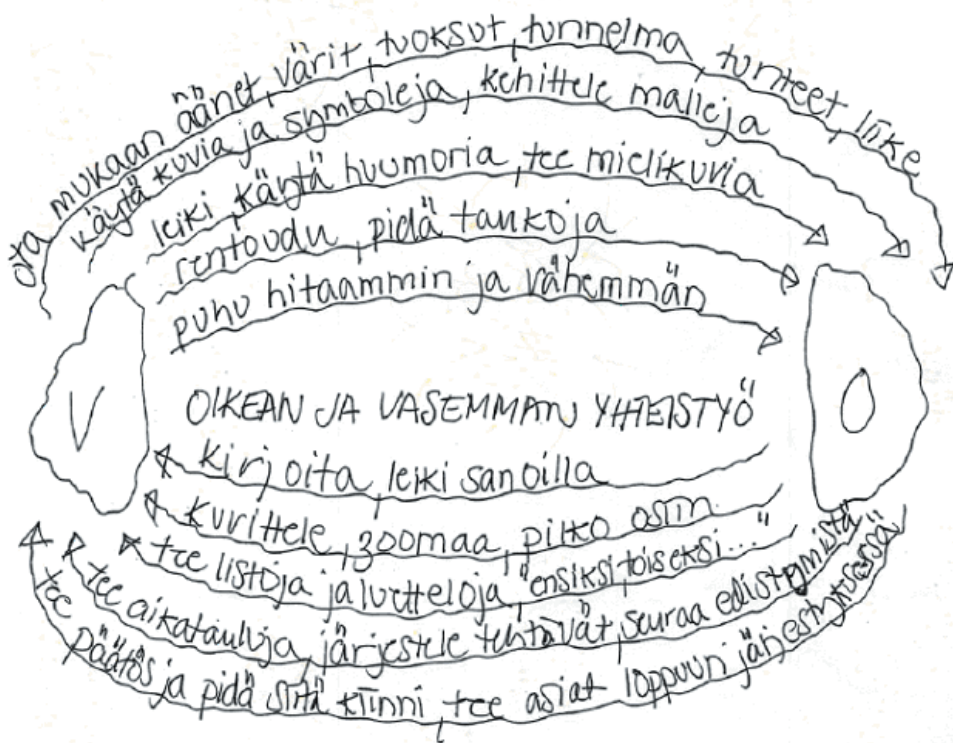 ota mukaan äänet, värit, tuoksut, tunnelma, tunteet, liike
käytä kuvia ja symboleja, kehittele malleja
leiki, käytä huumoria, tee mielikuvia
rentoudu, pidä taukoja
puhu hitaammin ja vähemmän
V
O
OIKEAN JA VASEMMAN YHTEISTYÖ
kirjoita, leiki sanoilla
kuvittele, zoomaa, pilko osiin
tee listoja ja luetteloja, "ensiksi, toiseksi..."
tee aikatauluja, järjestele tehtävät, seuraa edistymistä
tee päätös ja pidä siitä kiinni, tee asiat loppuun järjestyksessä